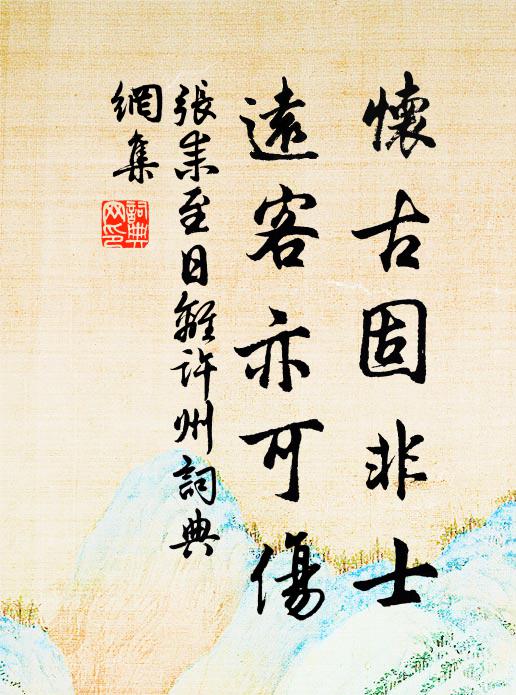 懷古固非士
遠客亦可傷
張耒至日離許州詞典
網集
詞典
网印